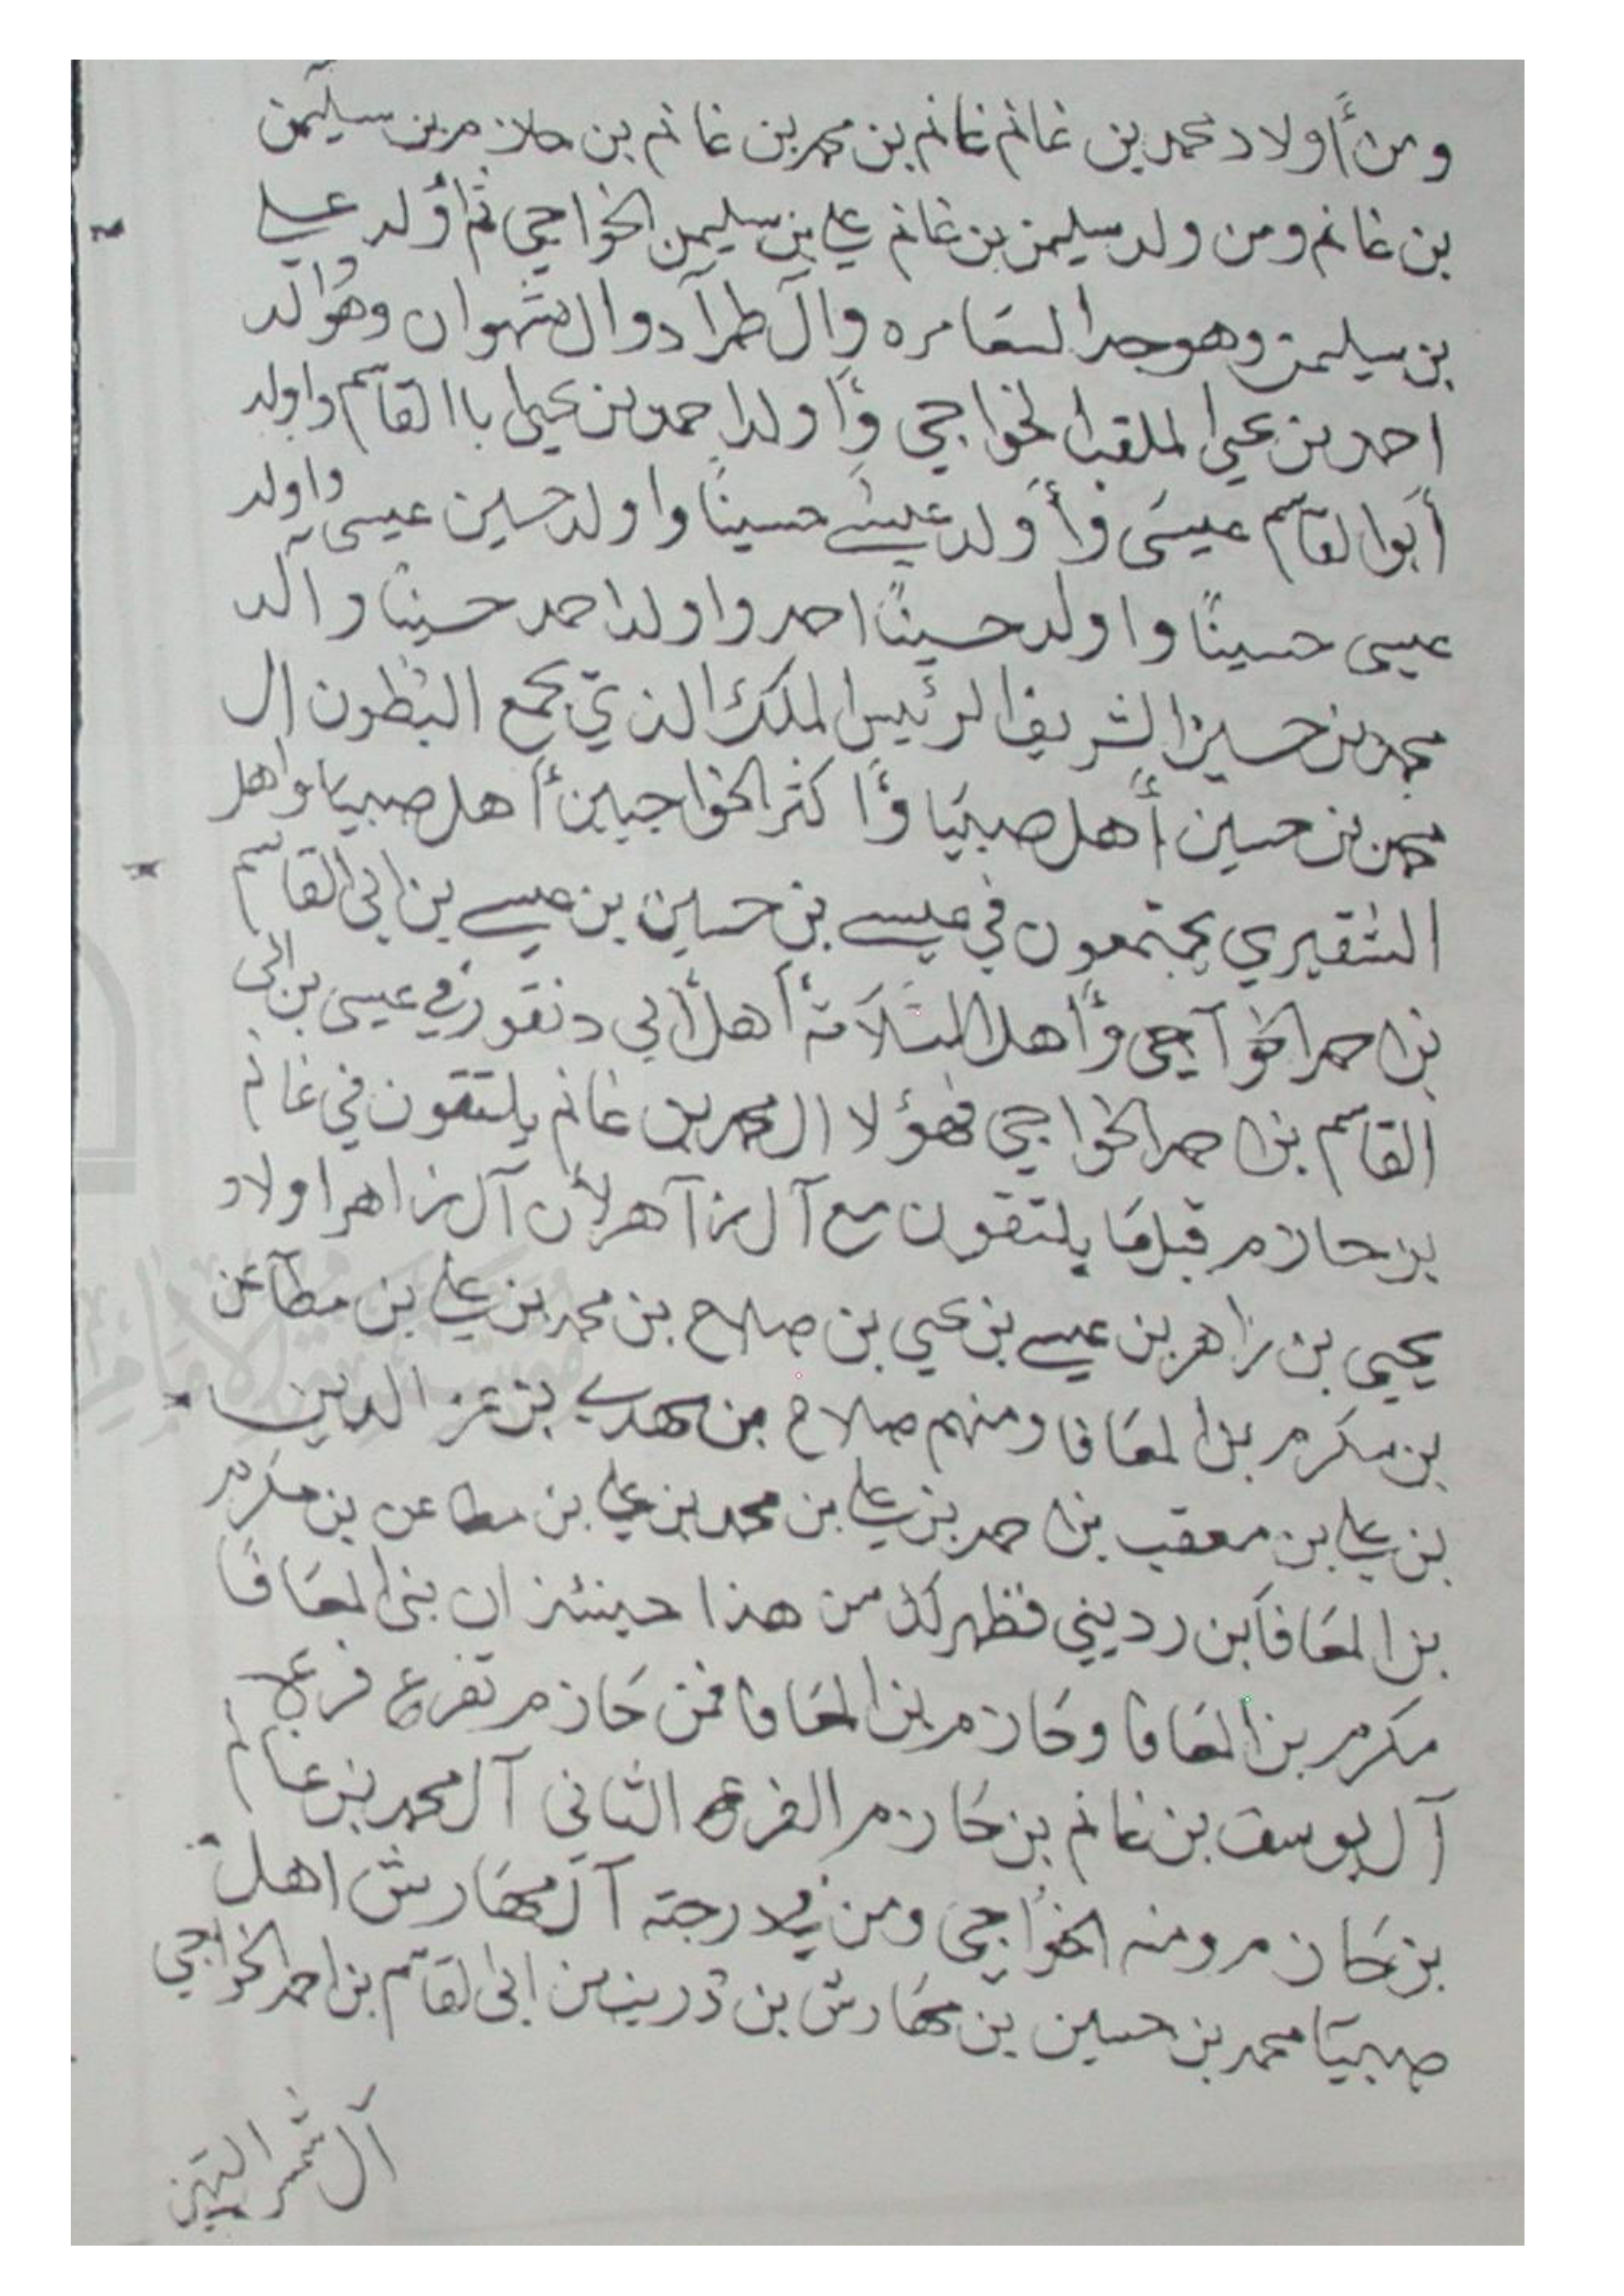 ومن أولاد محمد بن غانم غانم بن محمد بن غانم بن حازم بن سليمن
بن غانم ومن ولد سليمن بن غانم علي بن سليمن الخواجي ثم أولد علي
بن سليمن وهو جد السامره وال طرآد وال شهوان وهو والد
احمد بن يحيى الملقب الخواجي وأولد احمد بن يحيى با القاسم واولد
أبوا القاسم عيسى وأولد عيسى حسيناً واولد حسين عيسى واولد
عيسى حسيناً واولد حسيناً احمد واولد احمد حسيناً وآلد
محمد بن حسين الشريف الرئيس الملك الذي يجمع البطون ال
محمد بن حسين أهل صبيا وأكثر الخواجيين أهل صبيا واهل
الشقيري يجتمعون في عيسى بن حسين بن عيسى بن ابي القاسم
بن احمد الخوآجي وأهل الثلاثة أهل أبي دنقور في عيسى بن ابي
القاسم بن احمد الخواجي فهؤلا ال محمد بن غانم يلتقون في غانم
بن حازم قبلما يلتقون مع آل زآهر لأن آل زاهر اولاد
يحيى بن زاهر بن عيسى بن يحيي بن صلاح بن محمد بن علي بن مطآعن
بن مكرم بن المعافا ومنهم صلاح بن مهدي بن عز الدين
بن علي بن معقب بن احمد بن علي بن محمد بن علي بن مطاعن بن مكرم
بن المعافا بن رديني فظهر لك من هذا حينئذ ان بني المعافا
مكرم بن المعافا وحازم بن المعافا فمن حازم تفرع فرعا
آل يوسف بن غانم بن حازم الفرع الثاني آل محمد بن غانم
بن حازم ومنه الخواجي ومن في درجته آل مهارش اهل
صبيا محمد بن حسين بن مهارش بن دريب بن ابي القاسم بن احمد الخواجي
آل